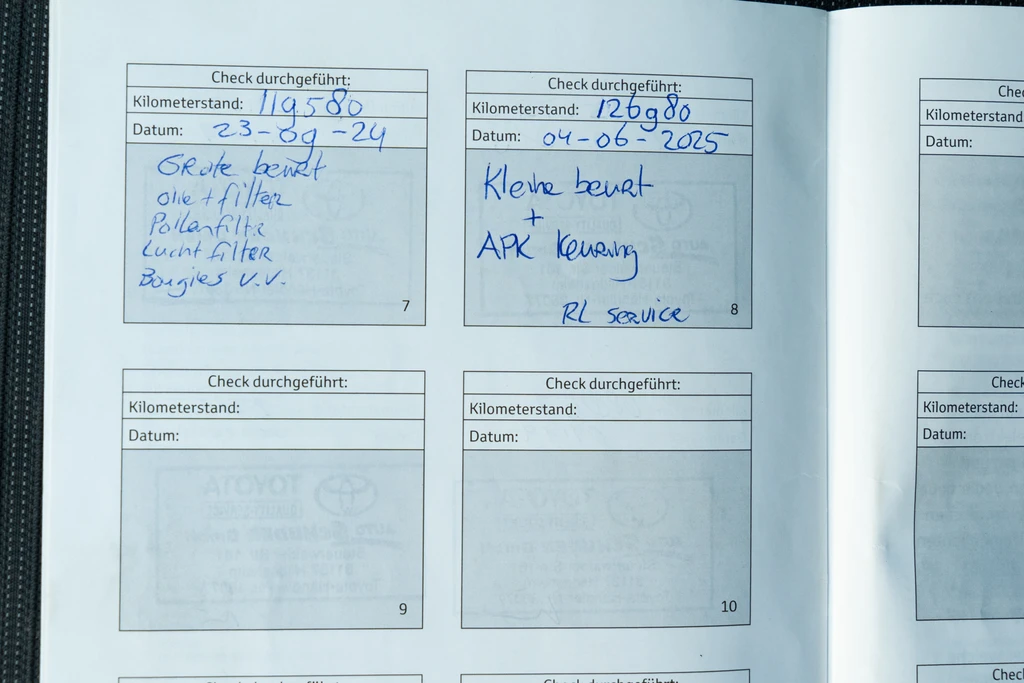 Check durchgeführt:
Kilometerstand: 119580
Datum: 23-09-24
GRote beurt
olie + filter
Pollenfilter
Lucht filter
Bougies v.v.
7
Check durchgeführt:
Kilometerstand: 126980
Datum: 04-06-2025
Kleine beurt
+
APK Keuring
RL service
8
Check durchgeführt:
Kilometerstand:
Datum:
TOYOTA
9
Check durchgeführt:
Kilometerstand:
Datum:
10
Kilometerstand:
Datum:
Check
Kilometerstand:
Datum:
Check durchgeführt:
Check